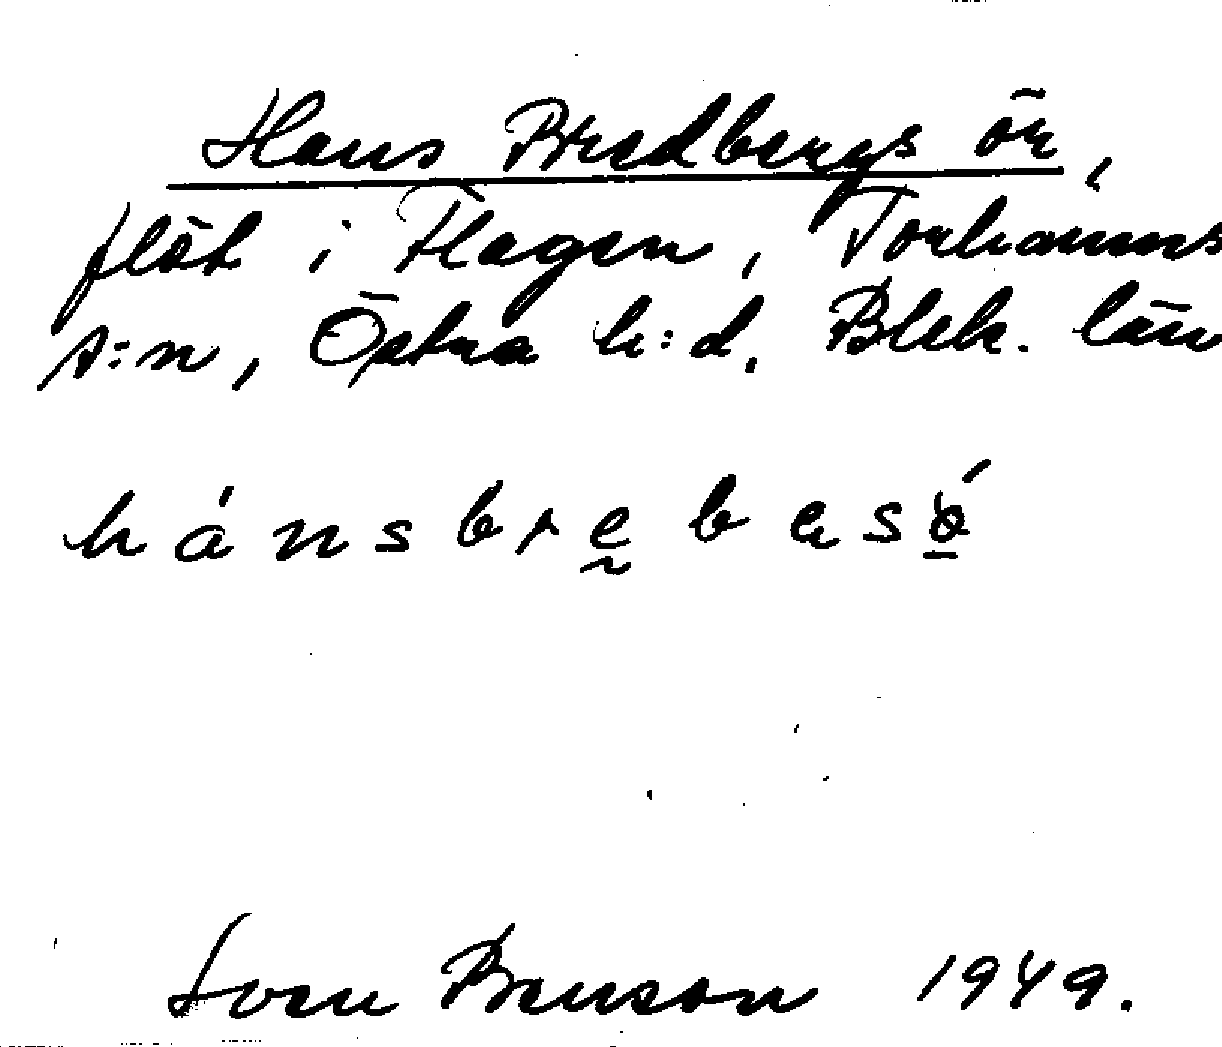 Hans Bredbergs ör,
flöt i Flagen, Torhamns
s:n, Östra h:d, Blek. län
hánsbrebesó
Sven Benson 1949.